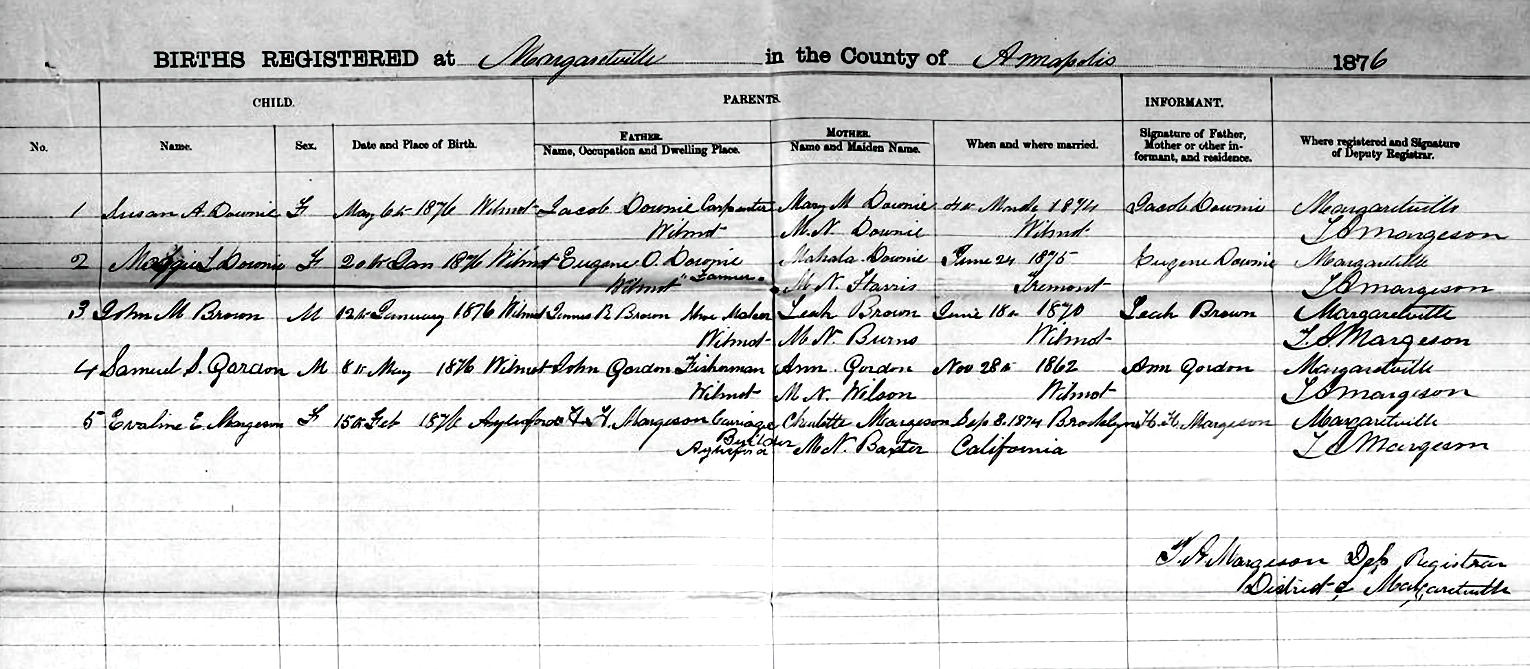 BIRTHS REGISTERED at Margaretville in the County of Annapolis 1876
CHILD. PARENTS. INFORMANT.
No. Name. Sex. Date and Place of Birth. FATHER. Name, Occupation and Dwelling Place. MOTHER. Name and Maiden Name. When and where married. Signature of Father, Mother or other informant, and residence. Where registered and Signature of Deputy Registrar.
1 Susan A. Downie F May 6th 1876 Wilmot Jacob Downie Carpenter Mary M Downie 4th March 1874 Jacob Downie Margaretville
Wilmot M.N. Downie Wilmot Margeson
2 Downie F 20th Jan 1876 Wilmot Eugene O. Downie Mahala Downie June 24 1875 Eugene Downie Margaretville
Wilmot "Farmer" M.N. Harris Tremont Margeson
3 John M Brown M 12th January 1876 Wilmot James R Brown Shoe Maker Leah Brown June 18th 1870 Leah Brown Margaretville
Wilmot M.N. Burns Wilmot Margeson
4 Samuel S. Gordon M 8th May 1876 Wilmot John Gordon Fisherman Ann Gordon Nov 28th 1862 Ann Gordon Margaretville
Wilmot M.N. Wilson Wilmot Margeson
5 Evaline E. Margeson F 15th Feb 1876 Aylesford Margeson Carriage Charlotte Margeson Sep 8. 1874 Brooklyn Margeson Margaretville
Builder
Aylesford M.N. Baxter California Margeson
Margeson Dep Registrar
District of Margaretville